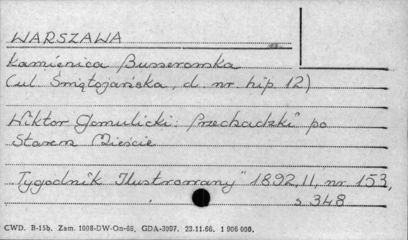 WARSZAWA
Kamienica Busserowska
(ul. Świętojańska, d. nr. hip. 12)
Wiktor Gomulicki: Przechadzki" po
Starem Mieście
"Tygodnik Ilustrowany" 1892, II, nr 153,
s 348
CWD. B-15b. Zam. 1008-DW-On-66, GDA-3097. 23.11.66. 1 000 000.